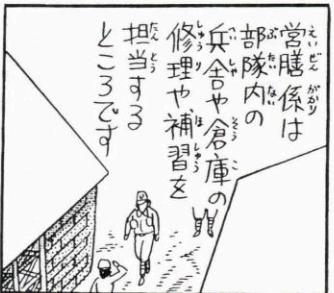 営膳係は
部隊内の
兵舎や倉庫の
修理や補習を
担当する
ところです